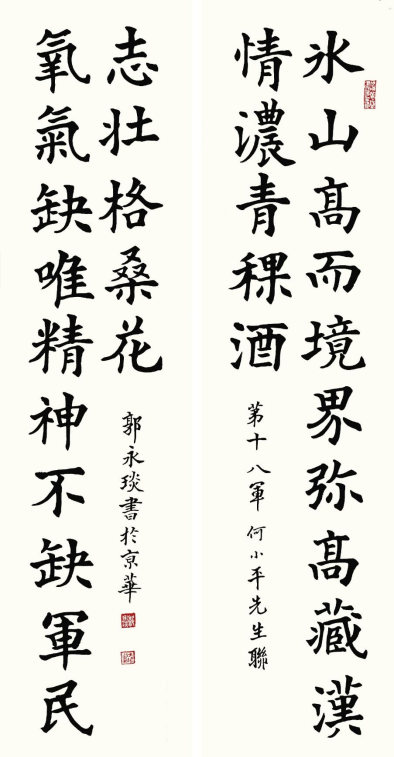 氷山髙而境界弥髙藏漢
情濃青稞酒
第十八軍何小平先生聯
氧氣缺唯精神不缺軍民
志壮格桑花
郭永琰書於亰華